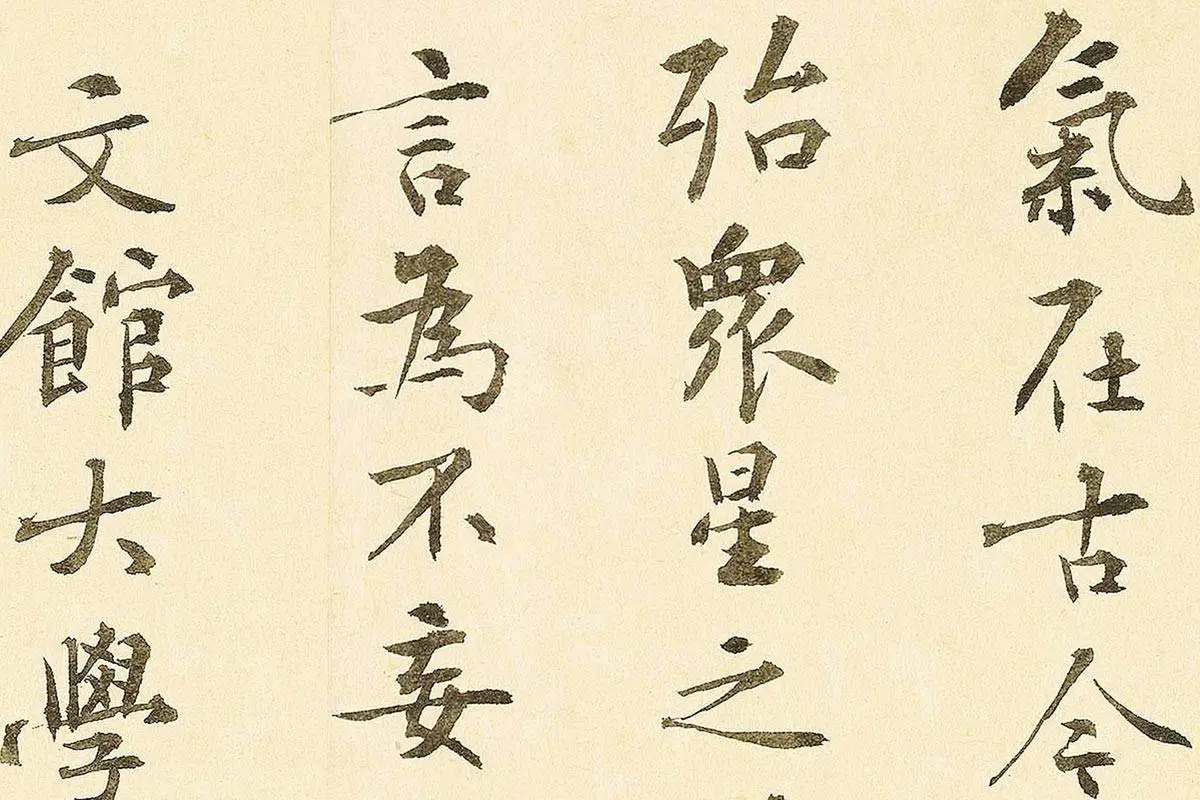 氣在古今
殆眾星之
言為不妄
文館大學